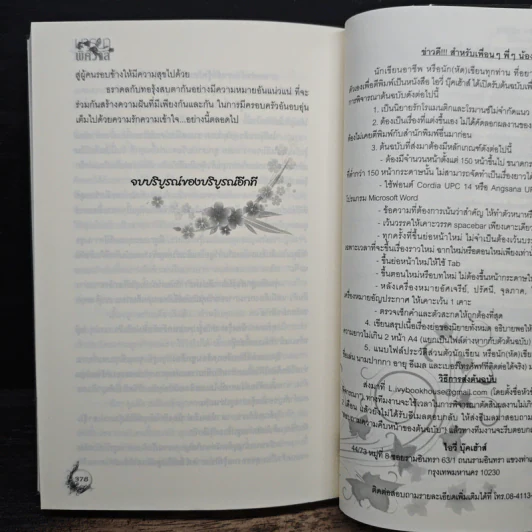 สู่ผู้คนรอบข้างให้มีความสุขไปด้วย
ธราดลกับหทอรุ้งสบตากันอย่างมีความหมายอันแน่วแน่ ที่จะ
ร่วมกันสร้างความฝันที่มีเพียงกันและกัน ในการมีครอบครัวอันอบอุ่น
เต็มไปด้วยความรักความเข้าใจ...อย่างนี้ตลอดไป
จบบริบูรณ์ของบริบูรณ์อีกที
378
ข่าวดี!!! สำหรับเพื่อน ๆ พี่ ๆ น้อง
นักเขียนอาชีพ หรือนัก(หัด)เขียนทุกท่าน ที่อยาก
ตัวเองเพื่อตีพิมพ์เป็นหนังสือ ไอวี่ บุ๊คเฮ้าส์ ได้เปิดรับต้นฉบับเพื่อ
การพิจารณาต้นฉบับดังต่อไปนี้
1. เป็นนิยายรักโรแมนติกและโรมานซ์ไม่จำกัดแนว
2. ต้องเป็นเรื่องที่แต่งขึ้นเอง ไม่ได้คัดลอกผลงานของ
ต้องไม่เคยตีพิมพ์กับสำนักพิมพ์อื่นมาก่อน
3. ต้นฉบับที่ส่งมาต้องมีหลักเกณฑ์ดังต่อไปนี้
- ต้องมีจำนวนหน้าตั้งแต่ 150 หน้าขึ้นไป ขนาดกระ
ที่ต่ำกว่า 150 หน้ากระดาษนั้น ไม่สามารถจัดทำเป็นเรื่องยาวได้
- ใช้ฟอนต์ Cordia UPC 14 หรือ Angsana UP
โปรแกรม Microsoft Word
- ข้อความที่ต้องการเน้นว่าสำคัญ ให้ทำตัวหนาหรือ
- เว้นวรรคให้เคาะวรรค spacebar เพียงเคาะเดียว
- ทุกครั้งที่ขึ้นย่อหน้าใหม่ ไม่จำเป็นต้องเว้นบรร
เฉพาะเวลาที่จะขึ้นเรื่องราวใหม่ ฉากใหม่หรือตอนใหม่เพียงเท่านั้น
- ขึ้นย่อหน้าใหม่ให้ใช้ Tab
- ขึ้นตอนใหม่หรือบทใหม่ ไม่ต้องขึ้นหน้ากระดาษให
- หลังเครื่องหมายอัศเจรีย์, ปรัศนี, จุลภาค,
เครื่องหมายอัญประกาศ ให้เคาะเว้น 1 เคาะ
- ตรวจเช็กคำและตัวสะกดให้ถูกต้องที่สุด
4. เขียนสรุปเนื้อเรื่องย่อของนิยายทั้งหมด อธิบายพอให้
ความยาวไม่เกิน 2 หน้า A4 (แยกเป็นไฟล์ต่างหากกับตัวต้นฉบับ)
5. แนบไฟล์ประวัติส่วนตัวนักเขียน หรือนัก(หัด)เขียน
ชื่อเล่น นามปากกา อายุ อีเมล และเบอร์โทรศัพท์ที่ติดต่อได้จริง)
วิธีการส่งต้นฉบับ
ส่งมาที่ l_ivybookhouse@gmail.com (โดยตั้งชื่อหัวข้
พิจารณา") ทางทีมงานจะใช้เวลาในการพิจารณาคัดสรรผลงานไม่เกิน
ไอวี่ บุ๊คเฮ้าส์
44/73 หมู่ที่ 8 ซอยรามอินทรา 63/1 ถนนรามอินทรา แขวงท่าแ
กรุงเทพมหานคร 10230
ติดต่อสอบถามรายละเอียดเพิ่มเติมได้ที่ โทร.08-4113-